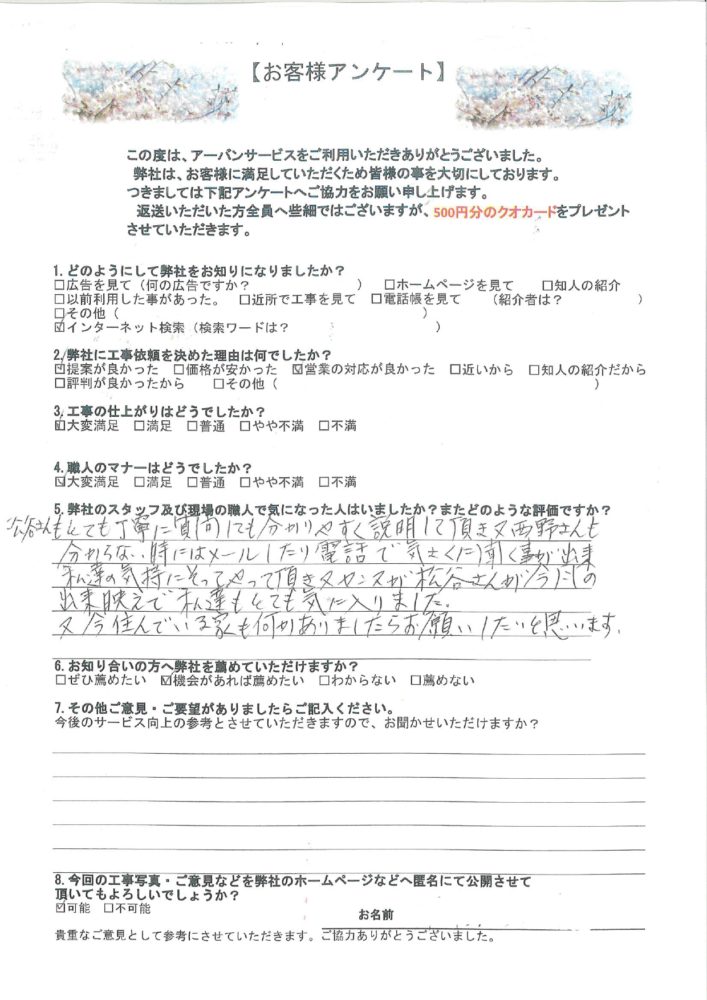 【お客様アンケート】
この度は、アーバンサービスをご利用いただきありがとうございました。
弊社は、お客様に満足していただくため皆様の事を大切にしております。
つきましては下記アンケートへご協力をお願い申し上げます。
返送いただいた方全員へ些細ではございますが、500円分のクオカードをプレゼント
させていただきます。
1.どのようにして弊社をお知りになりましたか？
□広告を見て（何の広告ですか？ ） □ホームページを見て □知人の紹介
□以前利用した事があった。 □近所で工事を見て □電話帳を見て （紹介者は？ ）
□その他（ ）
☑インターネット検索（検索ワードは？ ）
2.弊社に工事依頼を決めた理由は何でしたか？
☑提案が良かった □価格が安かった ☑営業の対応が良かった □近いから □知人の紹介だから
□評判が良かったから □その他（ ）
3.工事の仕上がりはどうでしたか？
☑大変満足 □満足 □普通 □やや不満 □不満
4.職人のマナーはどうでしたか？
☑大変満足 □満足 □普通 □やや不満 □不満
5.弊社のスタッフ及び現場の職人で気になった人はいましたか？またどのような評価ですか？
松谷さんもとても丁寧に質問しても分かりやすく説明して頂き又西野さんも
分からない時にはメールしたり電話で気さくに聞く事が出来
私達の気持にそってやって頂き又センスが松谷さんが
出来映えで私達もとても気に入りました。
又今住んでいる家も何かありましたらお願いしたいと思います。
6.お知り合いの方へ弊社を薦めていただけますか？
□ぜひ薦めたい ☑機会があれば薦めたい □わからない □薦めない
7.その他ご意見・ご要望がありましたらご記入ください。
今後のサービス向上の参考とさせていただきますので、お聞かせいただけますか？
8.今回の工事写真・ご意見などを弊社のホームページなどへ匿名にて公開させて
頂いてもよろしいでしょうか？
☑可能 □不可能
お名前
貴重なご意見として参考にさせていただきます。ご協力ありがとうございました。